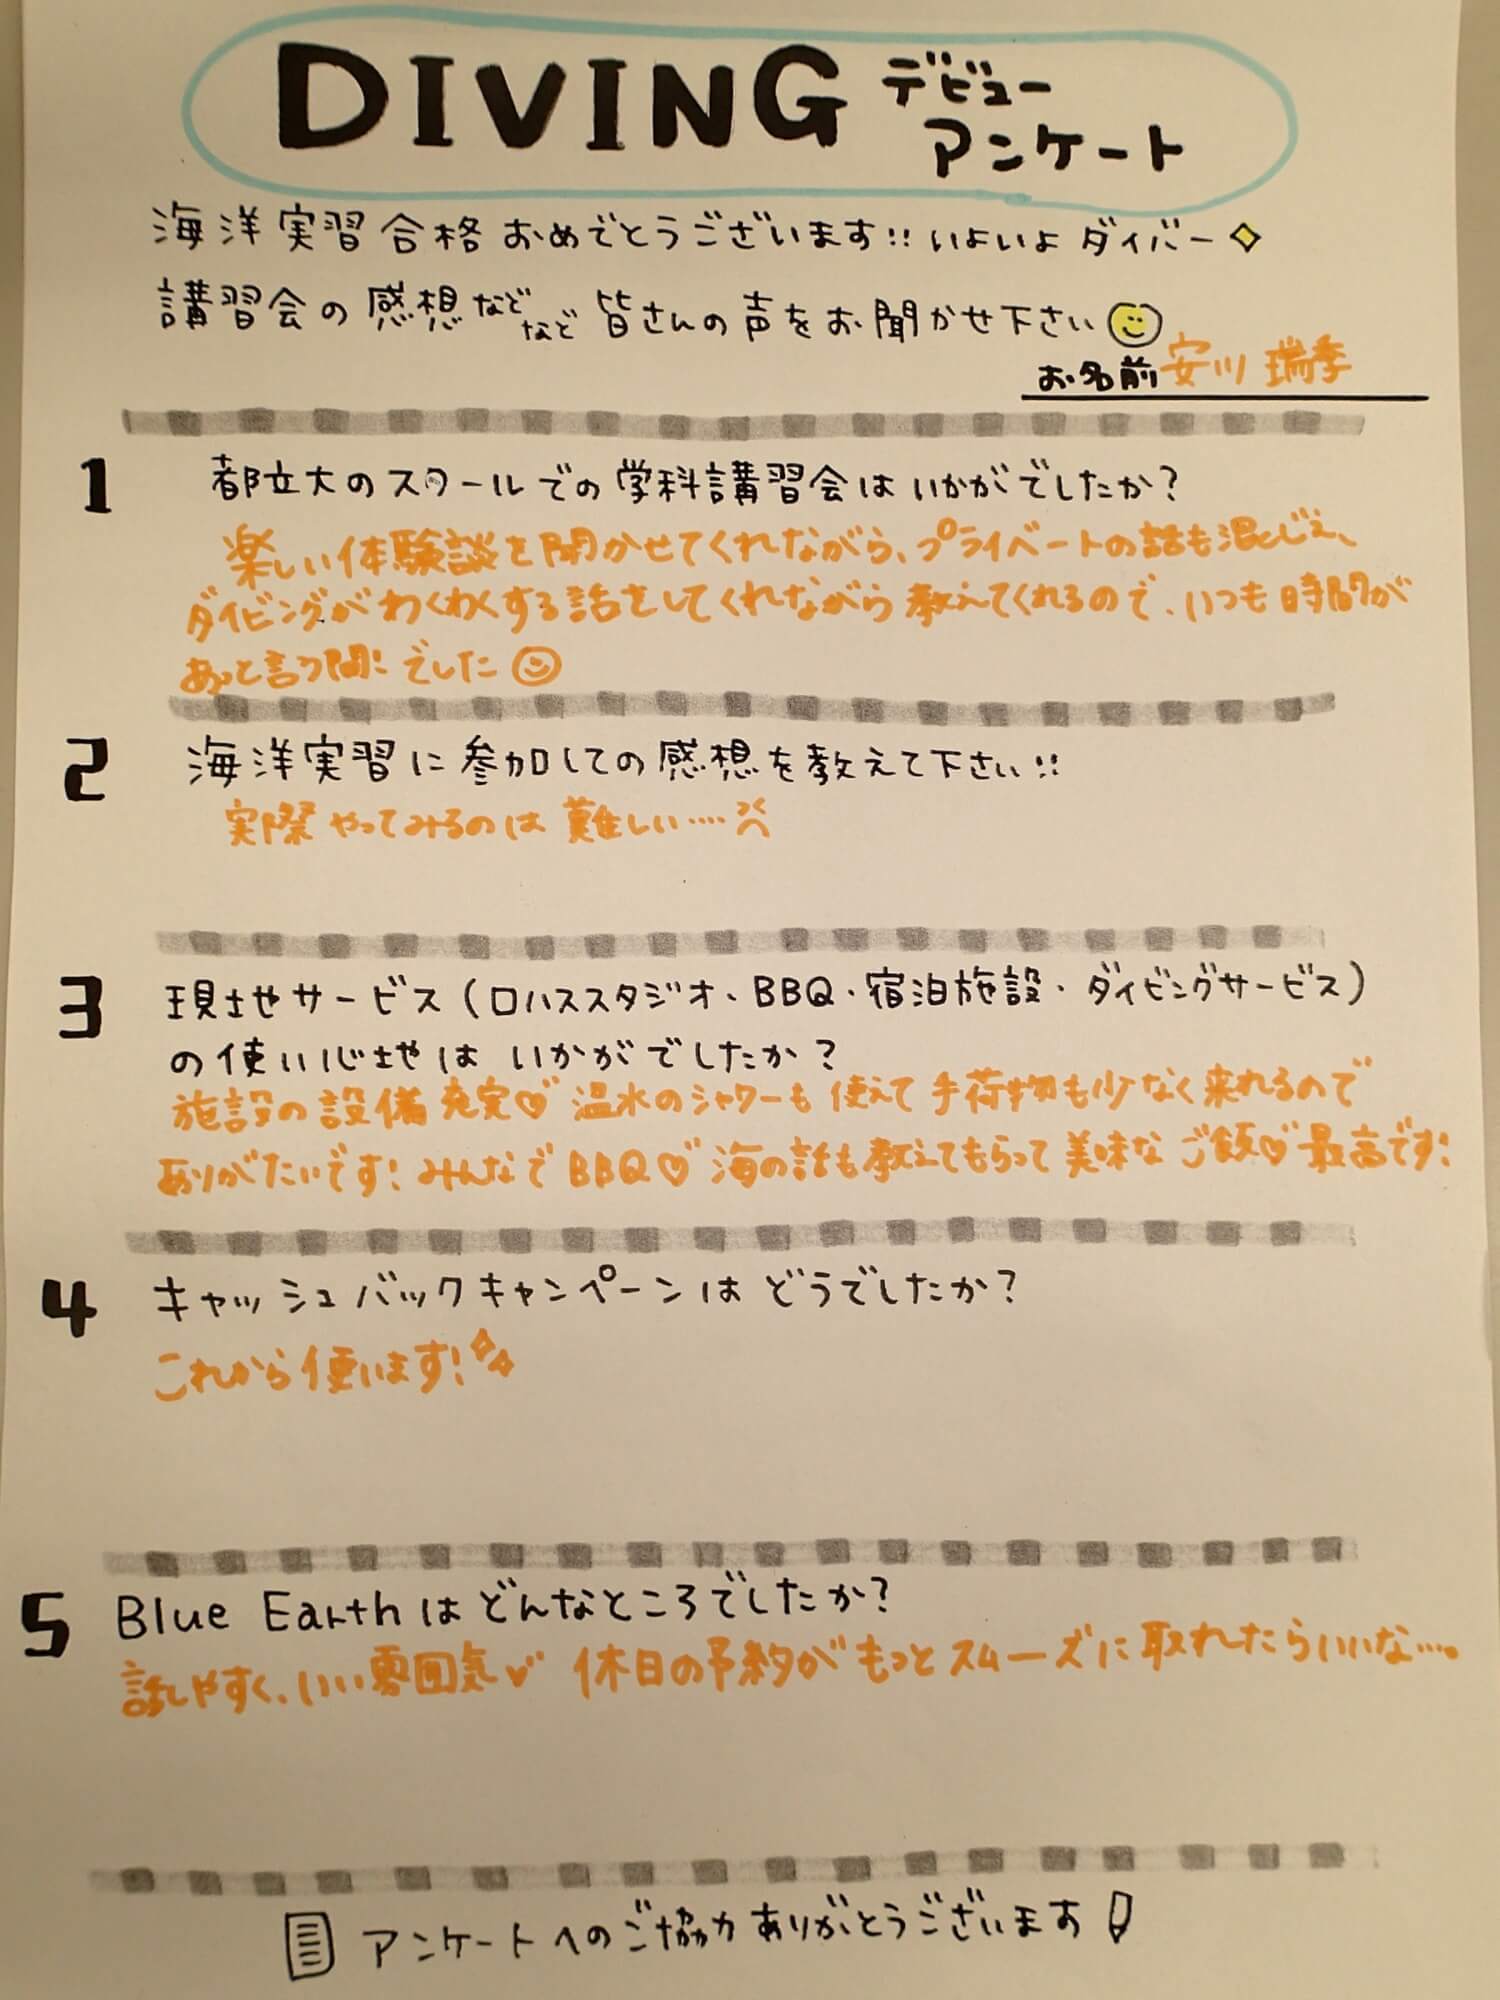 DIVING デビュー
アンケート
海洋実習合格おめでとうございます!! いよいよダイバー
講習会の感想などなど皆さんの声をお聞かせ下さい
お名前 安川 瑞季
1 都立大のスクールでの学科講習会はいかがでしたか?
楽しい体験談を聞かせてくれながら、プライベートの話も混じえ、
ダイビングがわくわくする話をしてくれながら教えてくれるので、いつも時間が
あっと言う間にでした
2 海洋実習に参加しての感想を教えて下さい!!
実際やってみるのは難しい....
3 現地サービス(ロハススタジオ、BBQ・宿泊施設・ダイビングサービス)
の使い心地はいかがでしたか?
施設の設備充実♡温水のシャワーも使えて手荷物も少なく来れるので
ありがたいです!みんなでBBQ♡海の話も教えてもらって美味なご飯♡最高です!
4 キャッシュバックキャンペーンはどうでしたか?
これから使います!
5 Blue Earthはどんなところでしたか?
話しやすく、いい雰囲気♡ 休日の予約がもっとスムーズに取れたらいいな....。
アンケートへのご協力ありがとうございます